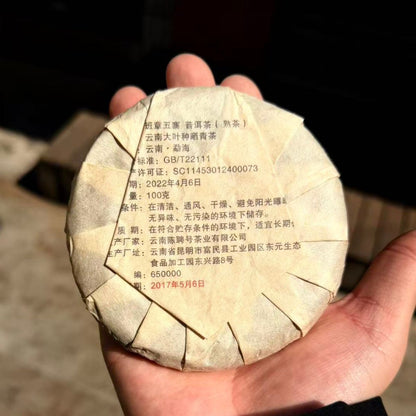 班章五寨 普洱茶（熟茶）
云南大叶种晒青茶
云南·勐海
标准：GB/T22111
产许可证：SC11453012400073
期：2022年4月6日
量：100克
条件：在清洁、通风、干燥、避免阳光曝
无异味、无污染的环境下储存。
质 期：在符合贮存条件的环境下，适宜长期
生产厂家：云南陈聘号茶业有限公司
生产厂址：云南省昆明市富民县工业园区东元生态
食品加工园东兴路8号
编：650000
期：2017年5月6日